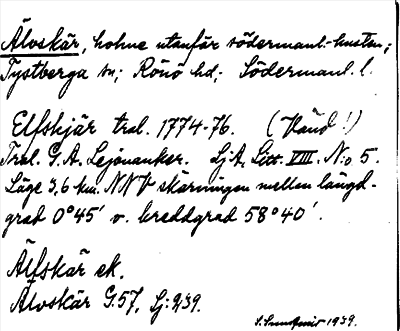 Älvskär, holme utanför södermanl.-kusten;
Tystberga sn; Rönö hd; Södermanl. l.
Elfskjär tral. 1774-76. (Vänd!)
Tral. G. A. Lejonanker. Sj.A. Litt. VIII. N:o 5.
Läge 3,6 km. NNV skärningen mellan längd-
grad 0°45' o. breddgrad 58°40'.
Älfskär ek.
Älvskär G.57. Sj: 239.
S. Sundqvist 1939.